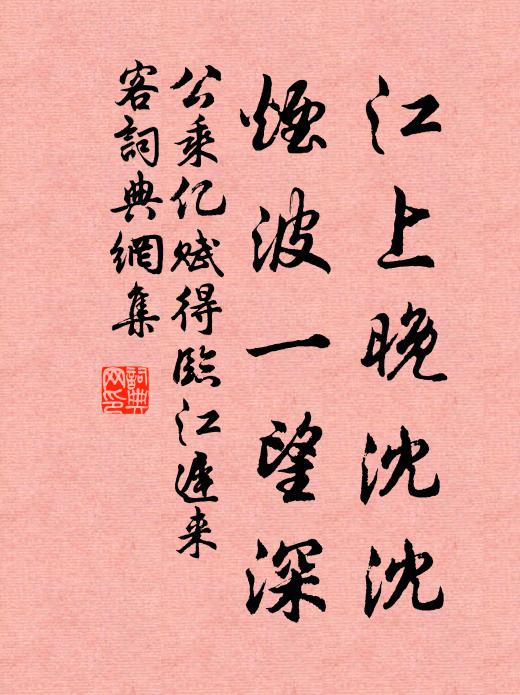 江上晚沈沈
煙波一望深
公乘亿赋得臨江遲来
客詞典網集
詞典网印